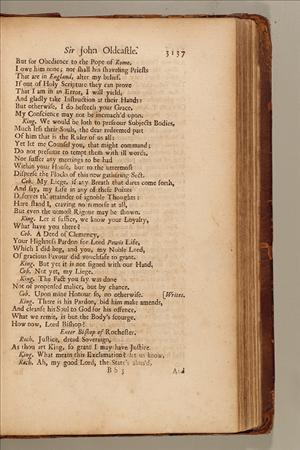 Sir John Oldcastle. 3137
But for Obedience to the Pope of Rome,
I owe him none; nor shall his shaveling Priests
That are in England, alter my belief.
If out of Holy Scripture they can prove
That I am in an Error, I will yield,
And gladly take Instruction at their Hands:
But otherwise, I do beseech your Grace,
My Conscience may not be incroach'd upon.
King. We would be loth to press our Subjects Bodies,
Much less their Souls, the dear redeemed part
Of him that is the Ruler of us all:
Yet let me Counsel you, that might command;
Do not presume to tempt them with ill words,
Nor suffer any meetings to be had
Within your House, but to the uttermost
Disperse the Flocks of this new gathering Sect.
Cob. My Liege, if any Breath that dares come forth,
And say, my Life in any of these Points
Deserves th' attainder of ignoble Thoughts:
Here stand I, craving no remorse at all,
But even the utmost Rigour may be shown.
King. Let it suffice, we know your Loyalty,
What have you there?
Cob. A Deed of Clemency,
Your Highness's Pardon for Lord Powis Life,
Which I did beg, and you, my Noble Lord,
Of gracious Favour did vouchsafe to grant.
King. But yet it is not signed with our Hand.
Cob. Not yet, my Liege.
King. The Fact you say was done
Not of propensed malice, but by chance.
Cob. Upon mine Honour so, no otherwise. [Writes.
King. There is his Pardon, bid him make amends,
And cleanse his Soul to God for his offence,
What we remit, is but the Body's scourge.
How now, Lord Bishop?
Enter Bishop of Rochester.
Roch. Justice, dread Soveraign,
As thou art King, so grant I may have Justice.
King. What means this Exclamation? let us know.
Roch. Ah, my good Lord, the State's abus'd,
B b 3 And